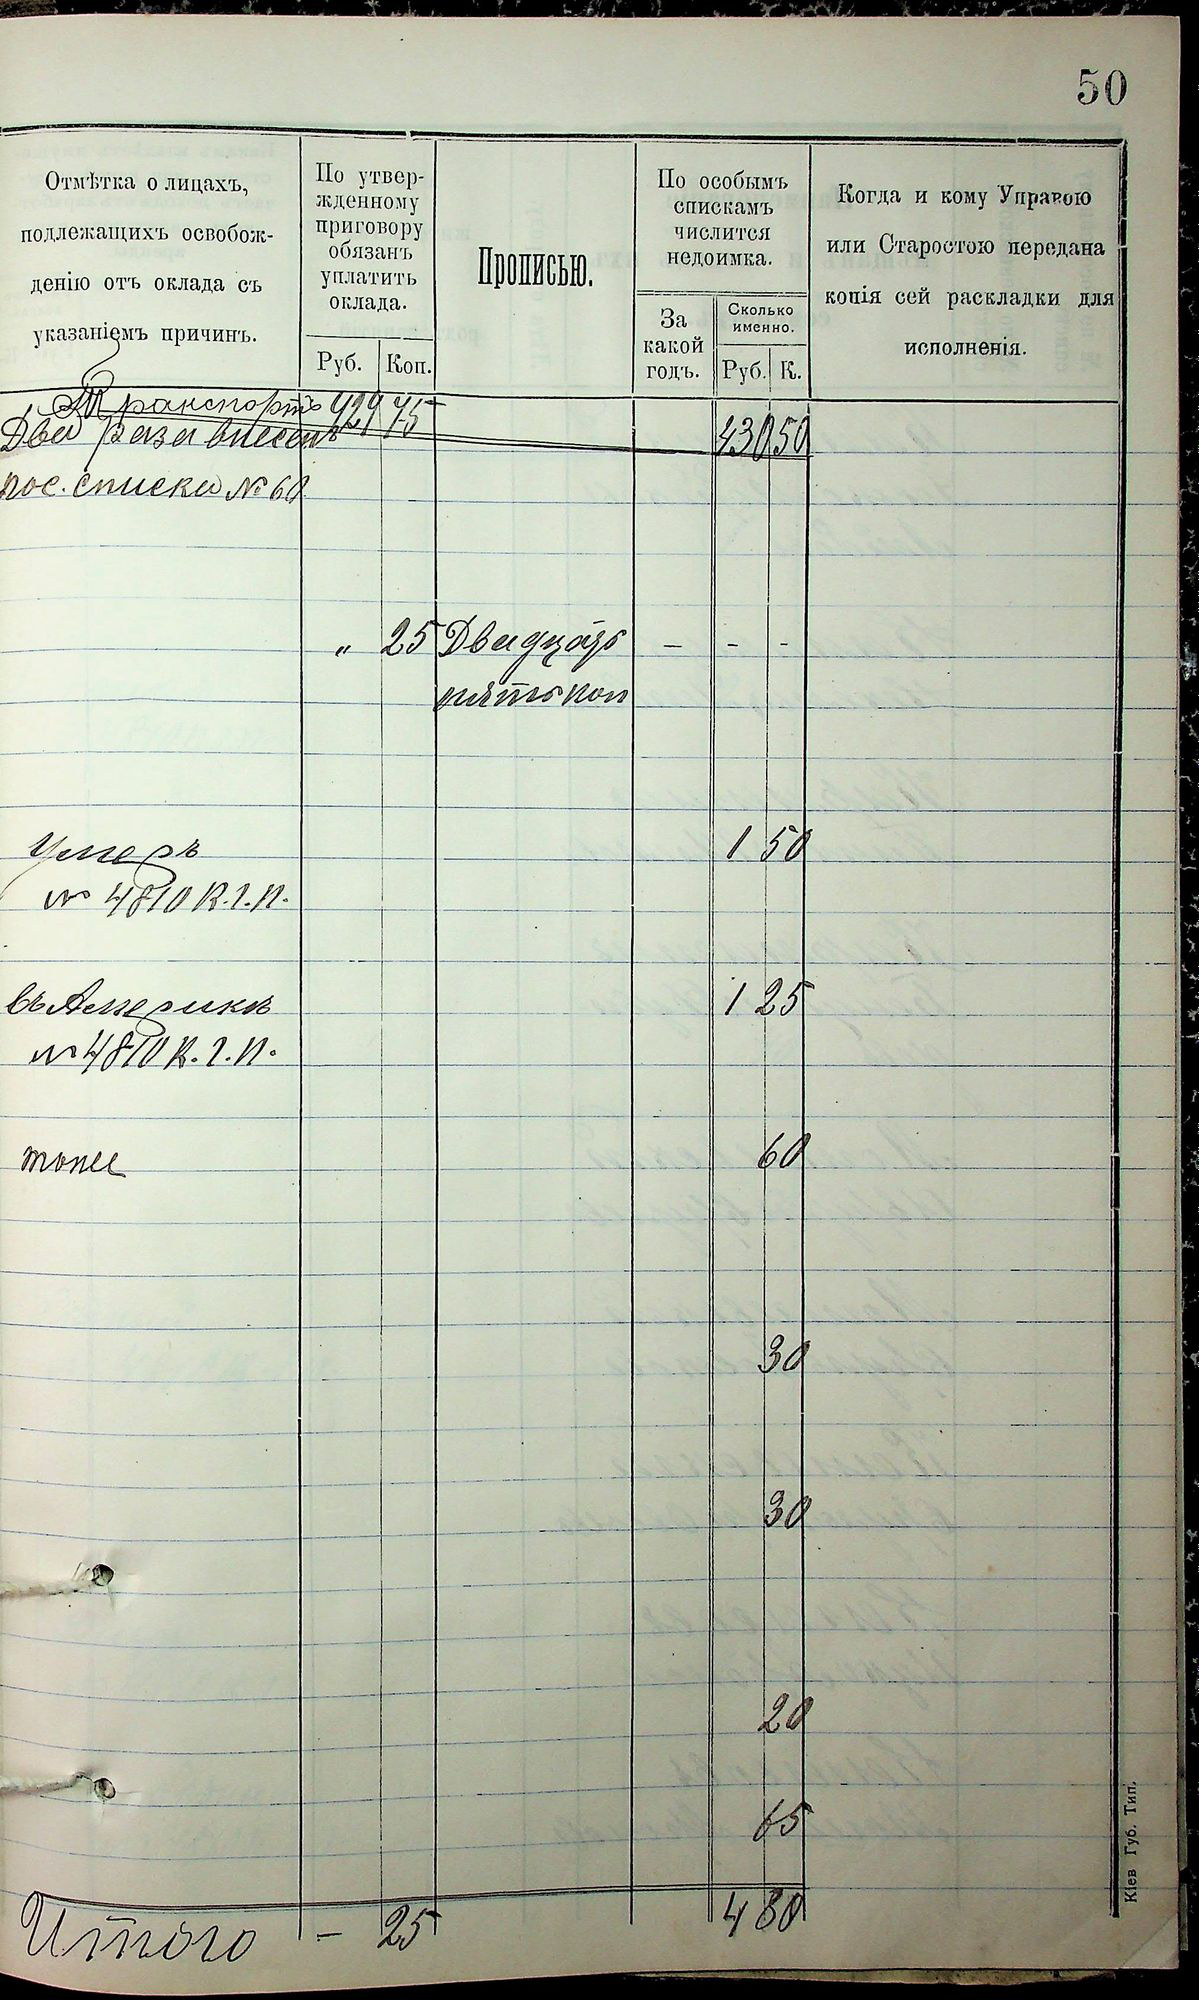 50
Отмѣтка о лицахъ,
подлежащихъ освобож-
денію отъ оклада съ
указаніемъ причинъ.
По утвер-
жденному
приговору
обязанъ
уплатить
оклада.
Руб. Коп.
Прописью.
По особымъ
спискамъ
числится
недоимка.
За
какой
годъ.
Сколько
именно.
Руб. К.
Когда и кому Управою
или Старостою передана
копія сей раскладки для
исполненія.
Транспортъ 429 75 430 50
Два раза внесенъ
пос. списки № 68
„ 25 Двадцать - - -
пять коп
Умеръ 1 50
№ 4810 К.Г.П.
въ Америкѣ 1 25
№ 4810 К.Г.П.
тоже 60
30
30
20
65
Итого - 25 4 80
Кіев Губ. Тип.